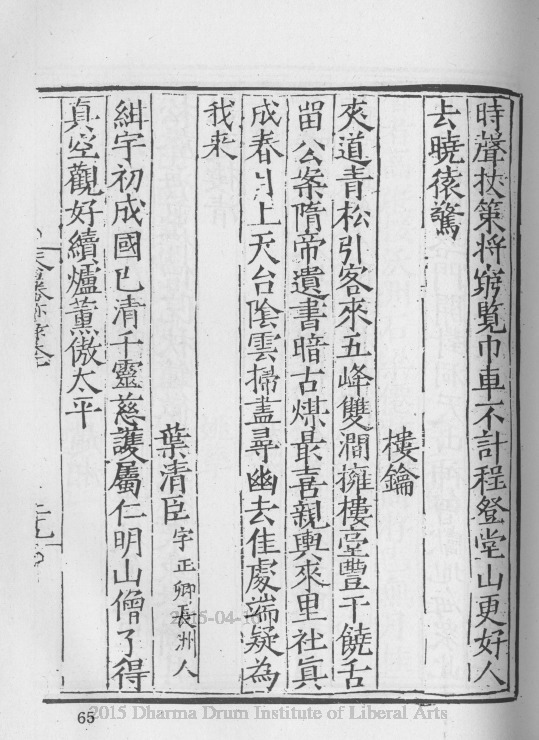 時聲杖策将窮覧巾車不計程登堂山更好人
去曉猿驚
樓鑰
夾道青松引客來五峰雙澗擁樓臺豐干饒舌
留公案隋帝遺書暗古煤最喜親輿來里社真
成春上天台陰雲掃盡尋幽去佳處端疑為
我来
葉清臣字正卿長洲人
紺宇初成國已清千靈慈護屬仁明山僧了得
真空觀好續爐薰傲太平
65
2015 Dharma Drum Institute of Liberal Arts